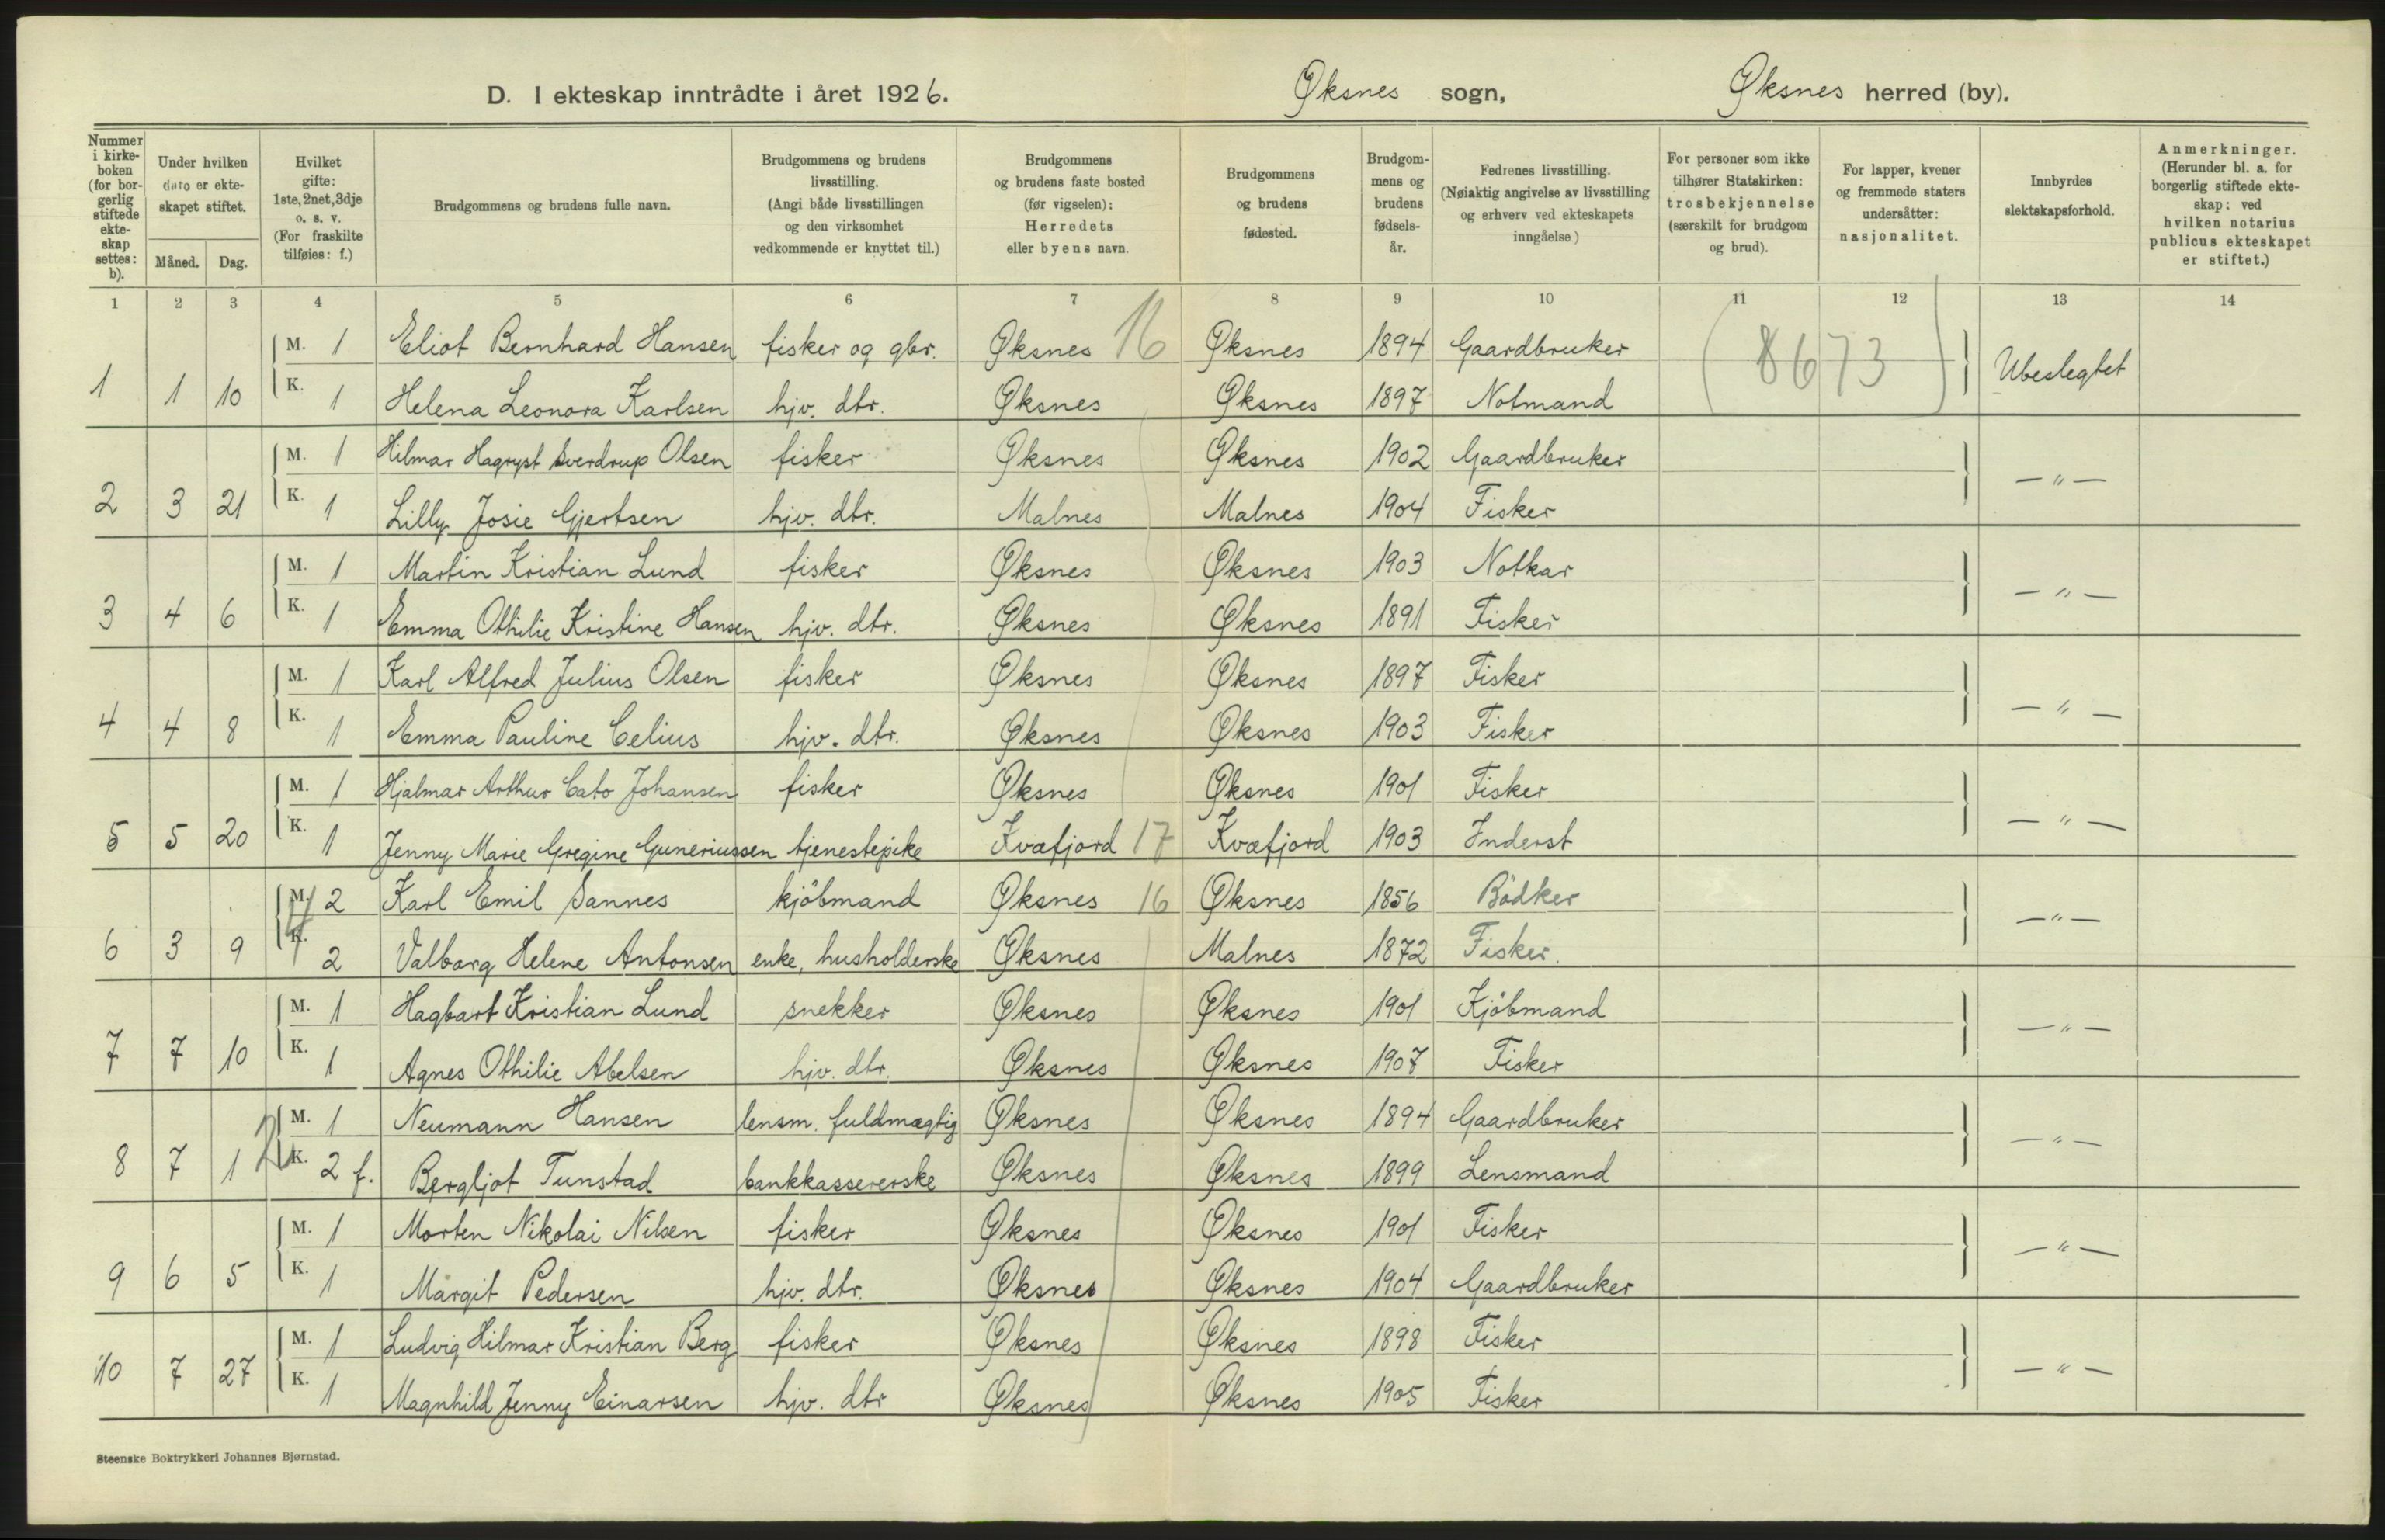 D. I ekteskap inntrådte i året 1926. Øksnes sogn, Øksnes herred (by).
Nummer i kirke-boken (for bor-gerlig stiftede ekte-skap settes: b). Under hvilken dato er ekte-skapet stiftet. Måned. Dag. Hvilket gifte: 1ste, 2net, 3dje o. s. v. (For fraskilte tilføies: f.) Brudgommens og brudens fulle navn. Brudgommens og brudens livsstilling. (Angi både livsstillingen og den virksomhet vedkommende er knyttet til.) Brudgommens og brudens faste bosted (før vigselen): Herredets eller byens navn. Brudgommens og brudens fødested. Brudgom-mens og brudens fødsels-år. Fedrenes livsstilling. (Nøiaktig angivelse av livsstilling og erhverv ved ekteskapets inngåelse) For personer som ikke tilhører Statskirken: trosbekjennelse (særskilt for brudgom og brud). For lapper, kvener og fremmede staters undersåtter: nasjonalitet. Innbyrdes slektskapsforhold. Anmerkninger. (Herunder bl. a. for borgerlig stiftede ekte-skap: ved hvilken notarius publicus ekteskapet er stiftet.)
1 2 3 4 5 6 7 8 9 10 11 12 13 14
M. 1 Eliot Bernhard Hansen fisker og gbr. Øksnes 16 Øksnes 1894 Gaardbruker (8673)
1 1 10 K. 1 Helena Leonora Karlsen hjv. dtr. Øksnes Øksnes 1897 Notmand Ubeslegtet
M. 1 Hilmar Hagryst Sverdrup Olsen fisker Øksnes Øksnes 1902 Gaardbruker
2 3 21 K. 1 Lilly Josie Gjertsen hjv. dtr. Malnes Malnes 1904 Fisker — " —
M. 1 Martin Kristian Lund fisker Øksnes Øksnes 1903 Notkar
3 4 6 K. 1 Emma Othilie Kristine Hansen hjv. dtr. Øksnes Øksnes 1891 Fisker — " —
M. 1 Karl Alfred Julius Olsen fisker Øksnes Øksnes 1897 Fisker
4 4 8 K. 1 Emma Pauline Celius hjv. dtr. Øksnes Øksnes 1903 Fisker — " —
M. 1 Hjalmar Arthur Cato Johansen fisker Øksnes Øksnes 1901 Fisker
5 5 20 K. 1 Jenny Marie Gregine Guneriussen tjenestepike Kvæfjord 17 Kvæfjord 1903 Inderst — " —
M. 2 Karl Emil Sannes kjöbmand Øksnes 16 Øksnes 1856 Bödker
6 3 9 K. 2 Valborg Helene Antonsen enke, husholderske Øksnes Malnes 1872 Fisker. — " —
M. 1 Hagbart Kristian Lund snekker Øksnes Øksnes 1901 Kjöbmand
7 7 10 K. 1 Agnes Othilie Abelsen hjv. dtr. Øksnes Øksnes 1907 Fisker — " —
M. 1 Neumann Hansen lensm. fuldmægtig Øksnes Øksnes 1894 Gaardbruker
8 7 1 K. 2 f. Bergljot Tunstad bankkassererske Øksnes Øksnes 1899 Lensmand — " —
M. 1 Morten Nikolai Nilsen fisker Øksnes Øksnes 1901 Fisker
9 6 5 K. 1 Margit Pedersen hjv. dtr. Øksnes Øksnes 1904 Gaardbruker — " —
M. 1 Ludvig Hilmar Kristian Berg fisker Øksnes Øksnes 1898 Fisker
10 7 27 K. 1 Magnhild Jenny Einarsen hjv. dtr Øksnes Øksnes 1905 Fisker — " —
Steenske Boktrykkeri Johannes Bjørnstad.